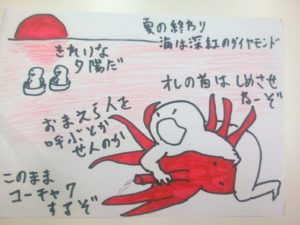 夏の終わり
海は深紅のダイヤモンド
きれいな
夕陽だ
オレの首は しめさせ
ねーぞ
おまえら人を
呼ぶとか
せんのか
このまま
コーチャク
するぞ